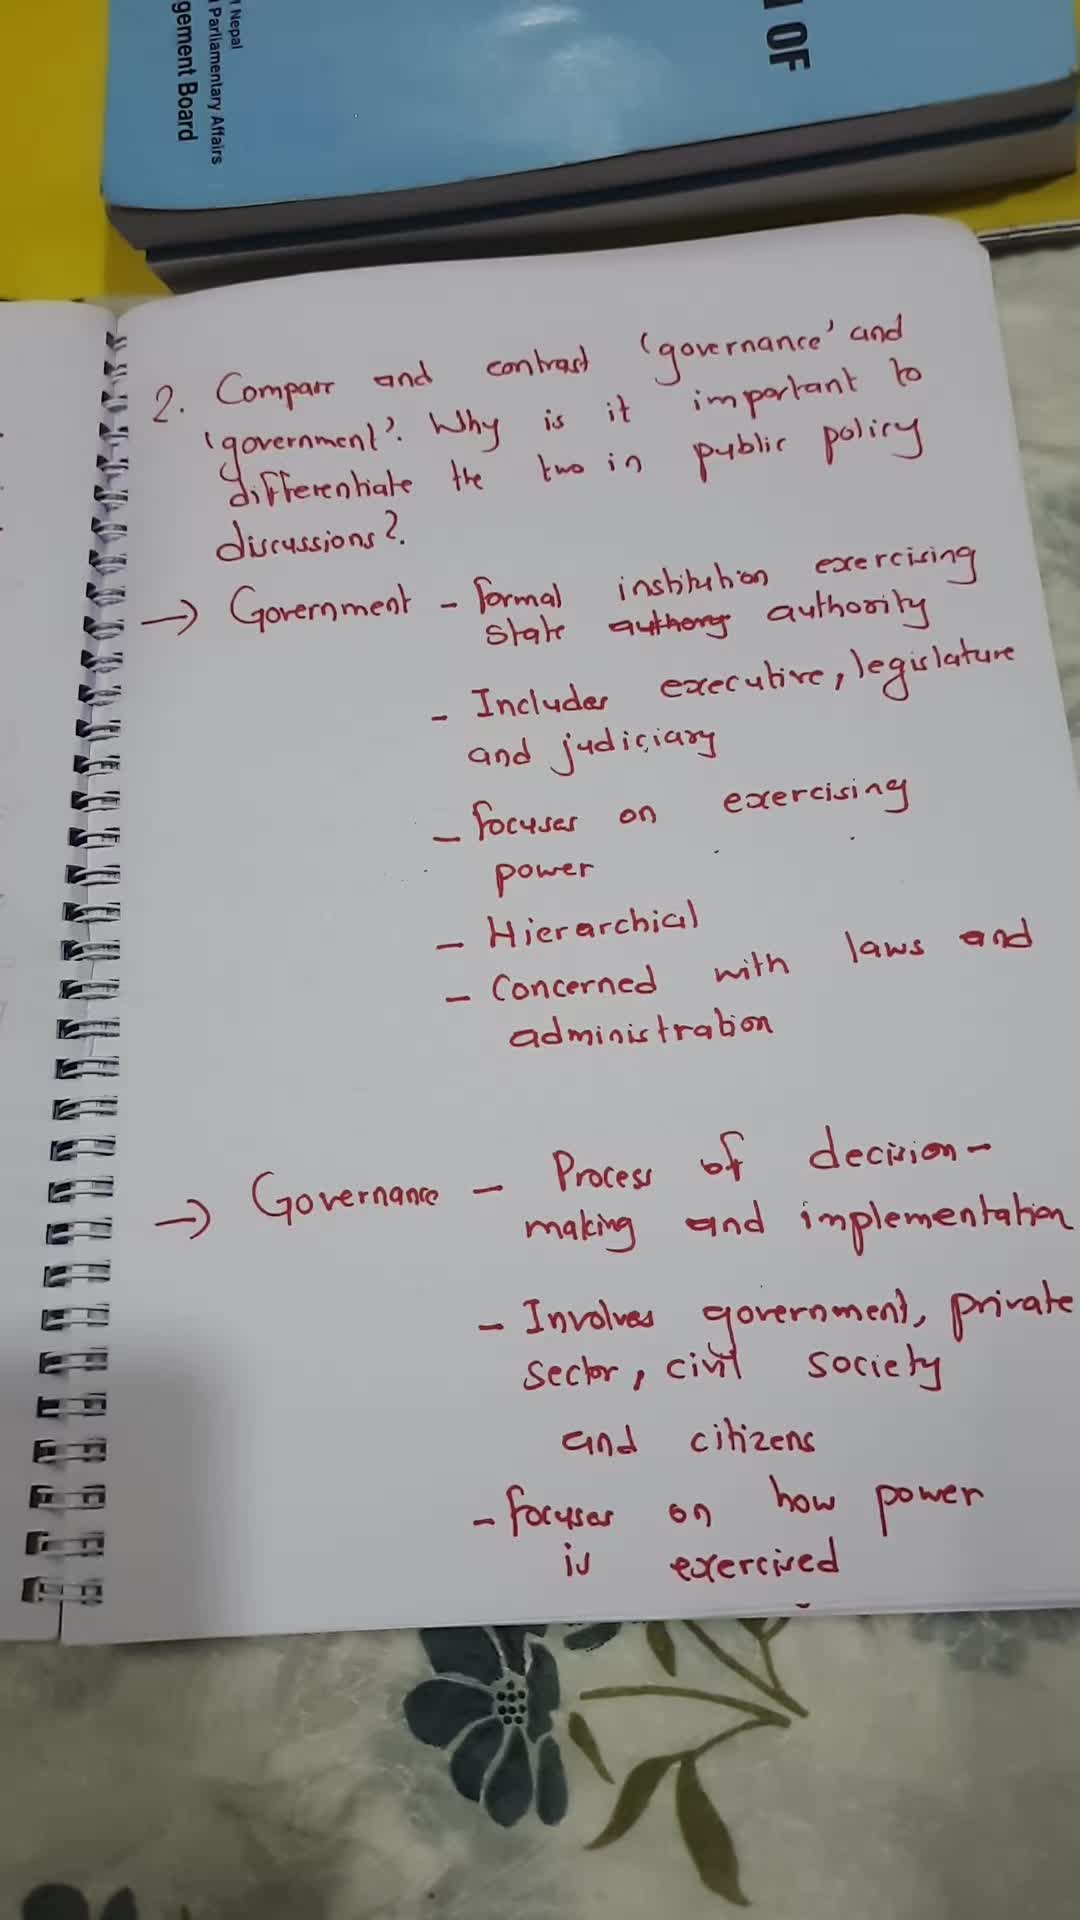 f Nepal
Parliamentary Affairs
gement Board
OF
2. Compare and contrast 'governance' and
'government'. Why is it important to
differentiate the two in public policy
discussions?.
→ Government - formal institution exercising
state authory authority
- Includes executive, legislature
and judiciary
- focuses on exercising
power
- Hierarchial
- Concerned with laws and
administration
→ Governance - Process of decision-
making and implementation
- Involves government, private
sector, civil society
and citizens
- focuses on how power
is exercised